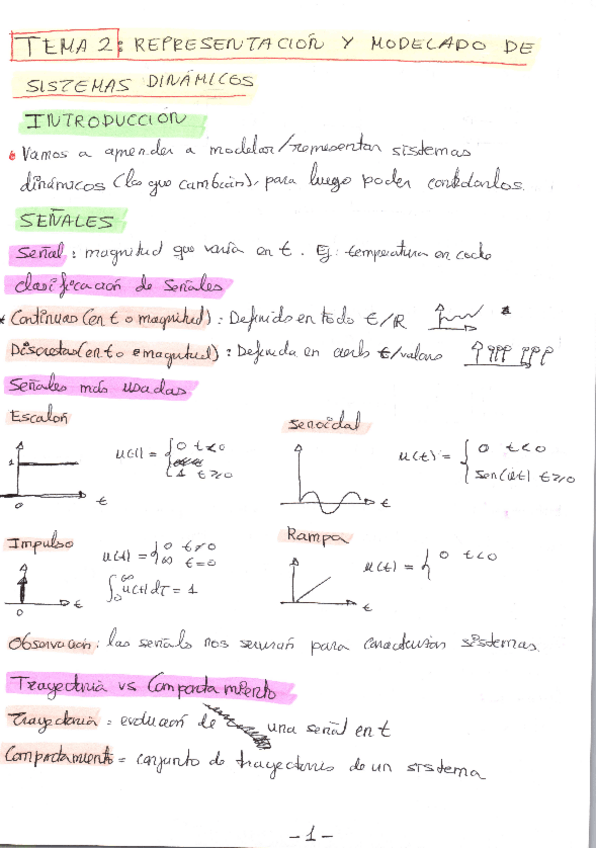 TEMA 2: REPRESENTACIÓN Y MODELADO DE
SISTEMAS DINÁMICOS
INTRODUCCIÓN
Vamos a aprender a modelar/representar sistemas
dinámicos (los que cambian), para luego poder controlarlos.
SEÑALES
Señal: magnitud que varía en t. Ej: temperatura en coche
clasificación de señales
* Continuas (en t o magnitud): Definido en todo t/R
Discretas (en t o magnitud): Definida en cierto t/valores
Señales más usadas
Escalón
senoidal
1
0
t
u(t) = { 0 t<0
1 t≥0
t
u(t) = { 0 t<0
sen(ωt) t≥0
Impulso
Rampa
0
t
u(t) = { 0 t≠0
∞ t=0
∫₀^∞ u(t)dτ = 1
t
u(t) = { 0 t<0
Observación: las señales nos servirán para caracterizar sistemas.
Trayectoria vs Comportamiento
Trayectoria: evolución de una señal en t
Comportamiento = conjunto de trayectorias de un sistema
-1-